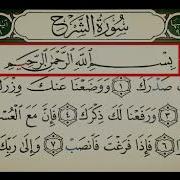 سُورَةُ الشَّرْحِ
بِسْمِ اللَّهِ الرَّحْمَٰنِ الرَّحِيمِ
صَدْرَكَ ١ وَوَضَعْنَا عَنكَ وِزْرَكَ
٣ وَرَفَعْنَا لَكَ ذِكْرَكَ ٤ فَإِنَّ مَعَ
٦ فَإِذَا فَرَغْتَ فَانصَبْ ٧ وَإِلَىٰ رَبِّكَ